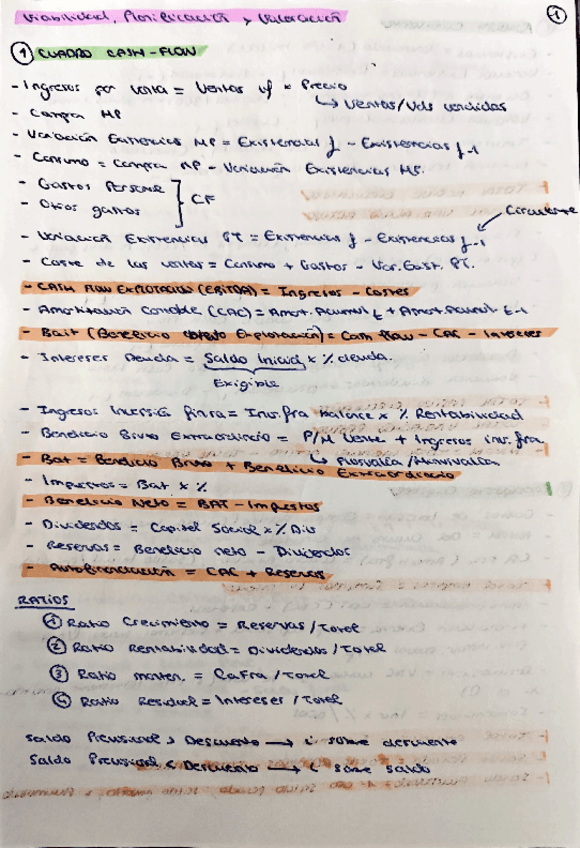 Viabilidad, Planificación y Valoración
1
1 CUADRO CASH-FLOW
- Ingresos por venta = Ventas uf x Precio
↳ Ventas/Uds vendidas
- Compra MP
- Variación Existencias MP = Existencias f - Existencias f-1
- Consumo = Compra MP - Variación Existencias MP.
- Gastos Personal
- Otros gastos
CF
Circulante
- Variación Existencias PT = Existencias f - Existencias f-1
- Coste de las ventas = Consumo + Gastos - Var. Exist. PT.
- CASH FLOW EXPLOTACIÓN (EBITDA) = Ingresos - Costes
- Amortización Contable (CAC) = Amort. Acumul t + Amort. Acumul t-1
- Bait (Beneficio Explotación) = Cash flow - CAC - Intereses
- Intereses Deuda = Saldo Inicial x % deuda.
Exigible
- Ingresos Inversión finra = Inv. fra balance x % Rentabilidad
- Beneficio Bruto Extraordinario = P/M Venta + Ingresos inv. fra.
↳ Plusvalía/Minusvalía
- Bat = Beneficio Bruto + Beneficio Extraordinario
- Impuestos = Bat x %
- Beneficio Neto = BAT - Impuestos
- Dividendos = Capital Social x % Div
- Reservas = Beneficio neto - Dividendos
- Autofinanciación = CAC + Reservas
RATIOS
1 Ratio Crecimiento = Reservas / Total
2 Ratio Rentabilidad = Dividendos / Total
3 Ratio manten. = / Total
4 Ratio Residual = Intereses / Total
Saldo Previsional > Descuento → i sobre descuento
Saldo Previsional < Descuento → i sobre saldo